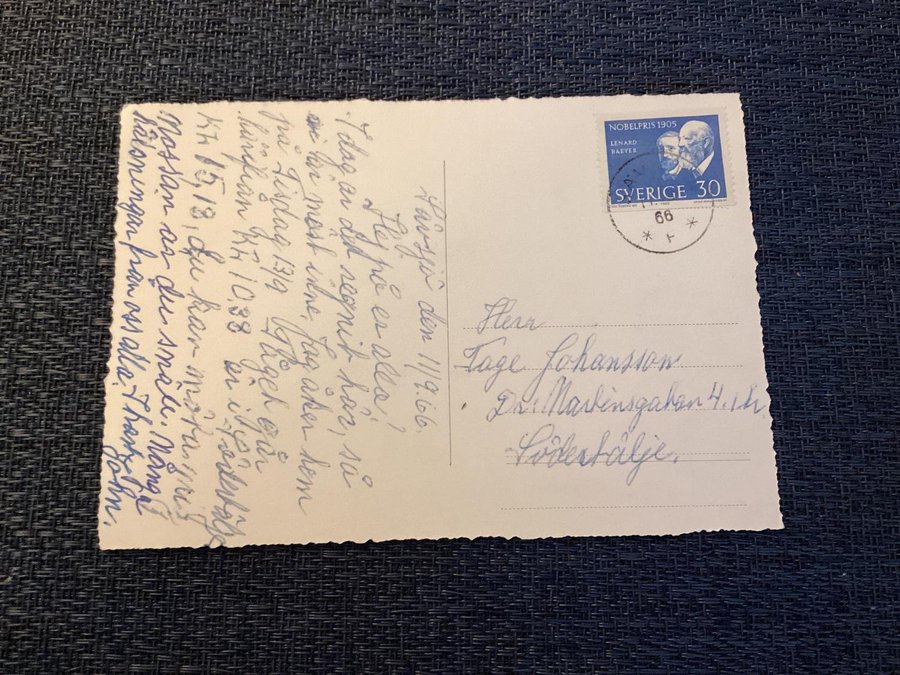 Sävsjö den 11/9.66
Hej på er alla!
Idag är det regnit här, så
är jag mest inne, Jag åker hem
på Tisdag 13/9 Tåget går
härifrån kl 10,38 är i Södertälje
kl 15,18, du kan möta mig
Mossan är du snäll. Många
hälsningar från oss alla.
John.
NOBELPRIS 1905
LENARD
BAEYER
SVERIGE 30
66
Herr
Tage Johansson
Dr: Martinsgatan 4.
Södertälje.